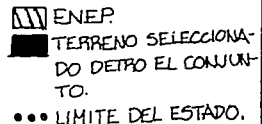 ENEP.
TERRENO SELECCIONA-
DO DETRO EL CONJUN-
TO.
LIMITE DEL ESTADO.